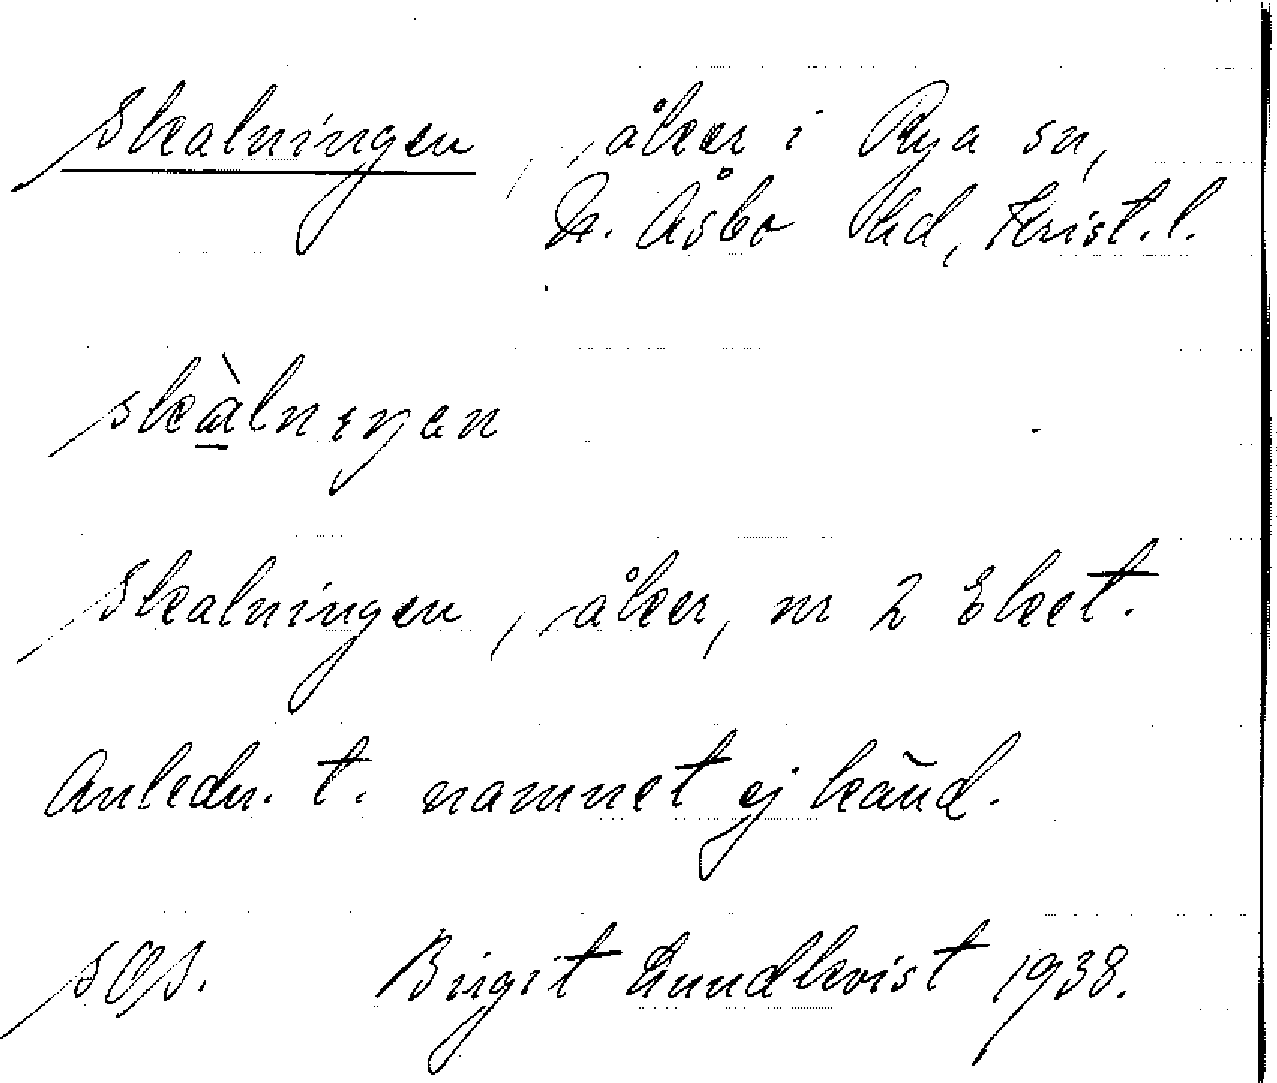 Skalningen, åker i Rya sn,
N. Åsbo hd, Krist. l.
skàlnıŋen
Skalningen, åker, nr 2 Eket.
Anledn. t. namnet ej känd.
Birgit Lundkvist 1938.